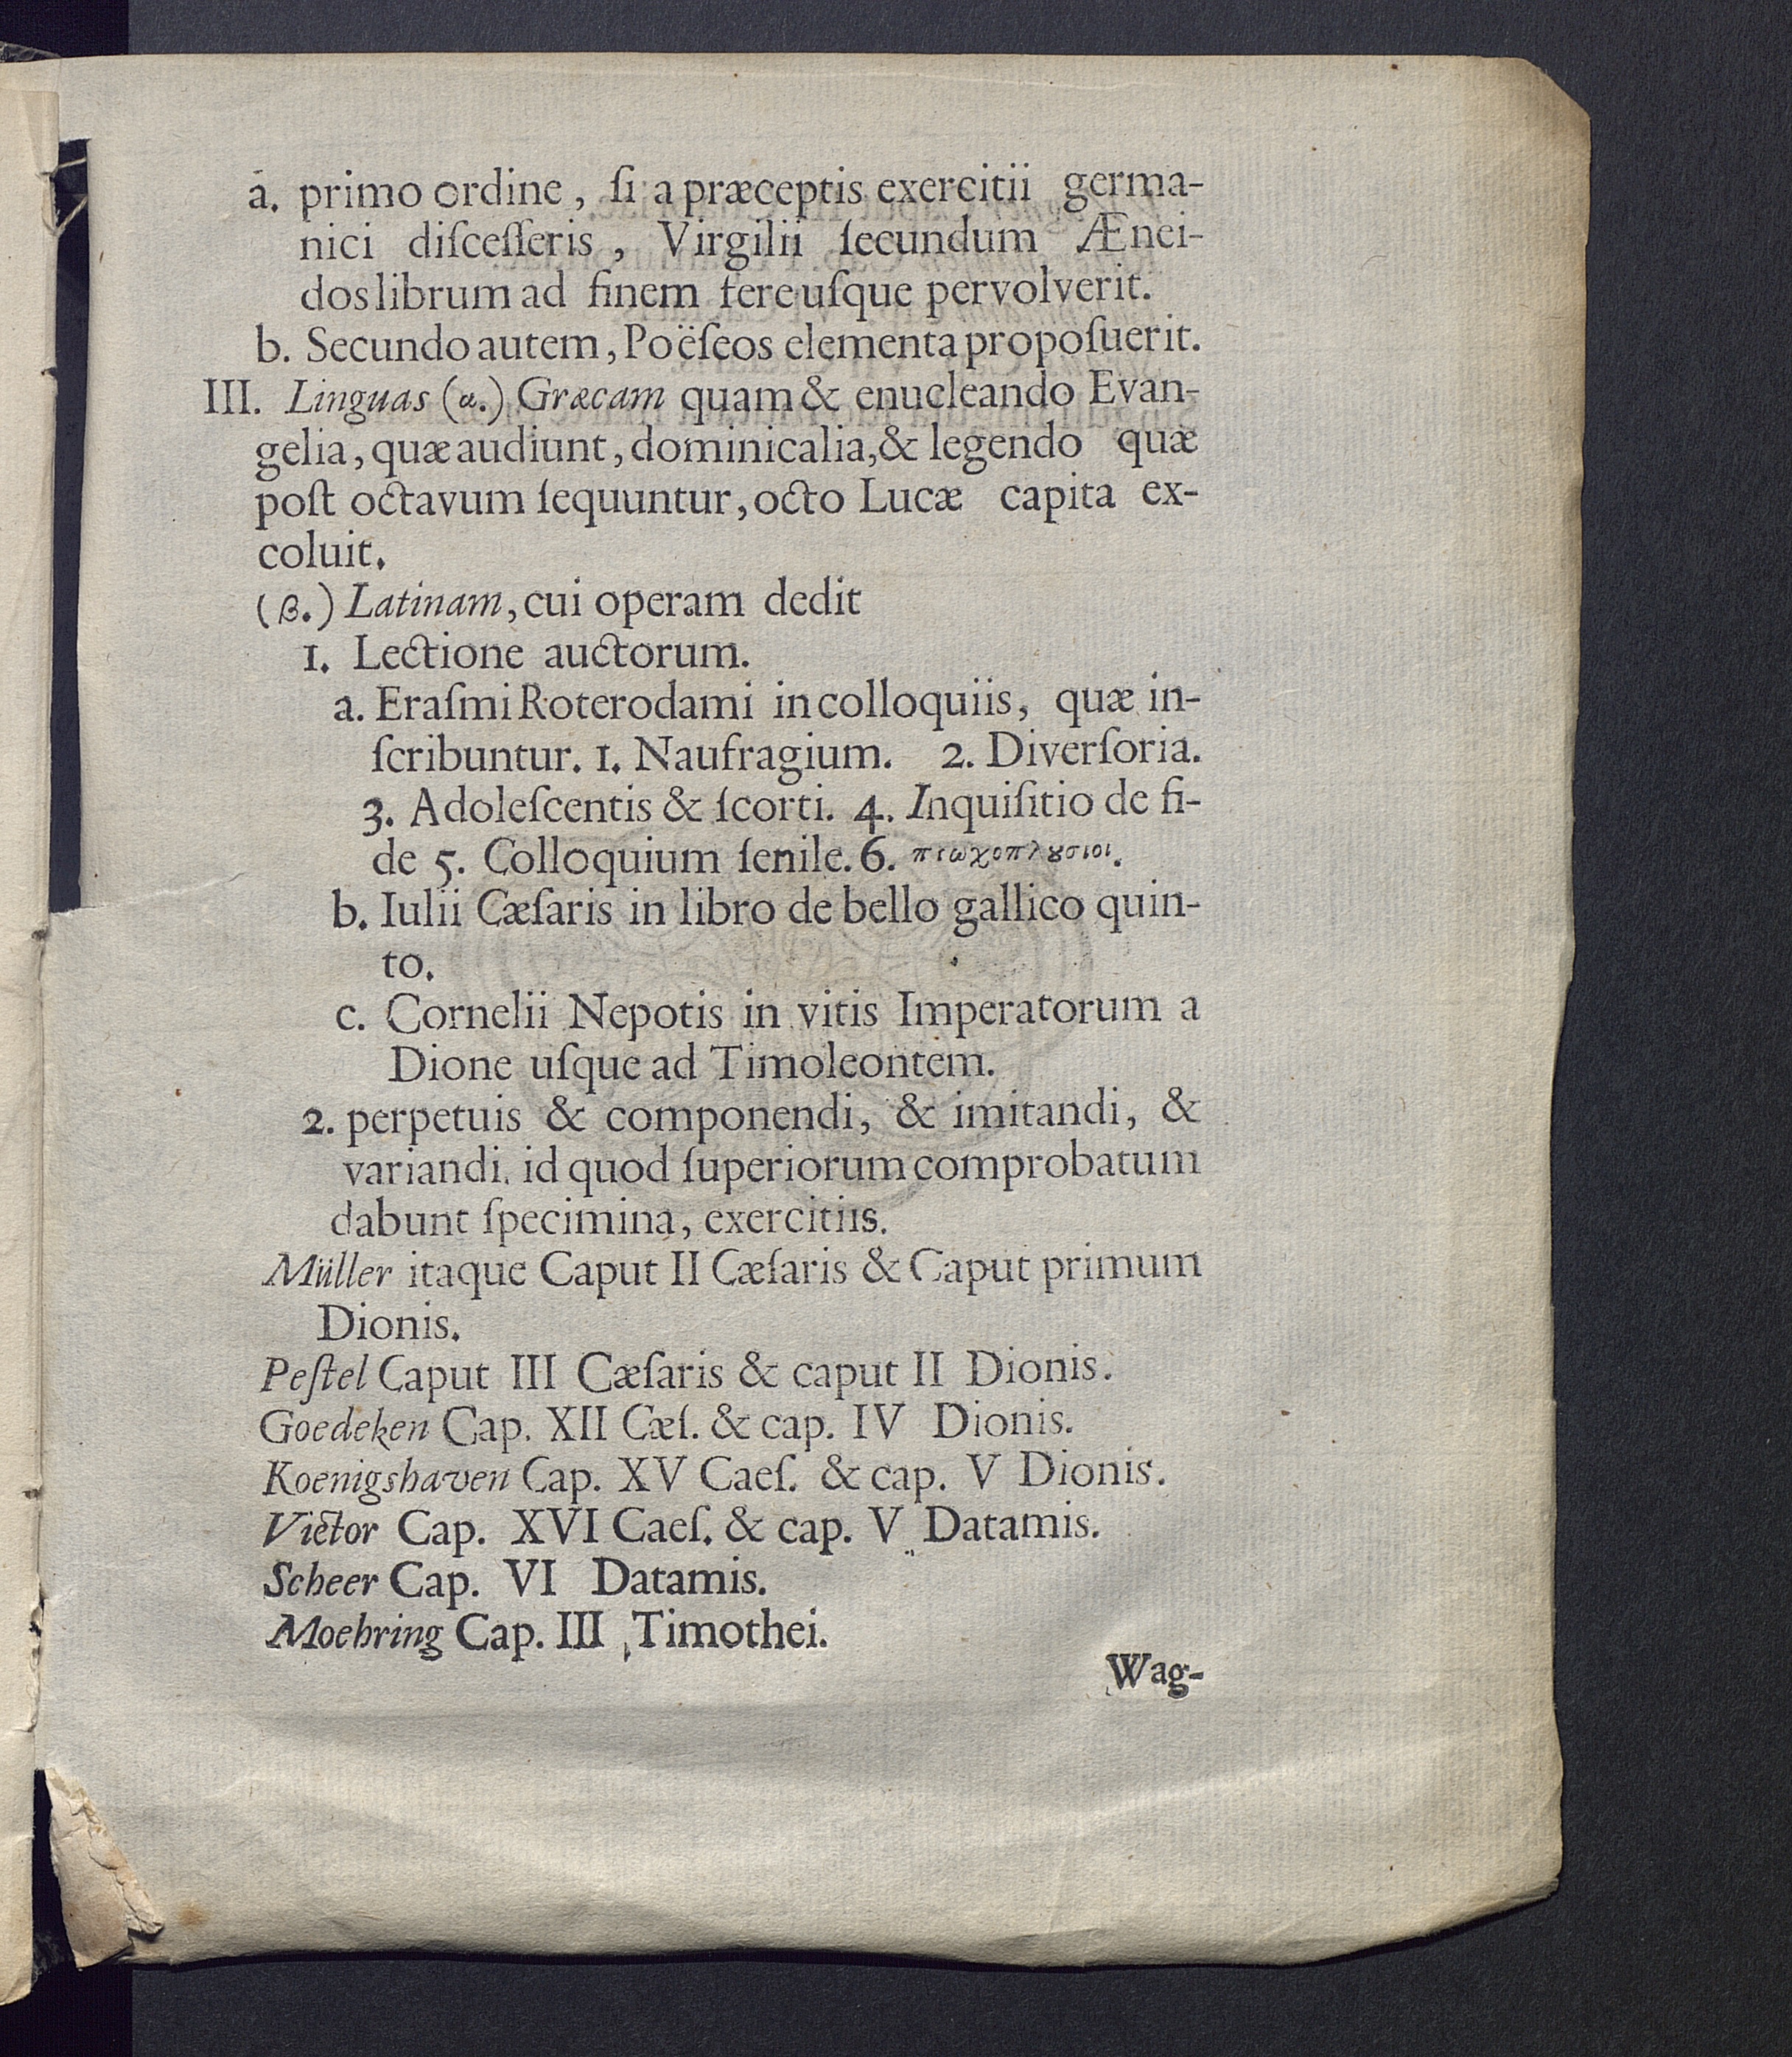 a. primo ordine, ſi a præceptis exercitii germa-
nici diſceſſeris, Virgilii ſecundum Ænei-
dos librum ad finem fere uſque pervolverit.
b. Secundo autem, Poëſeos elementa propoſuerit.
III. Linguas (α.) Græcam quam & enucleando Evan-
gelia, quæ audiunt, dominicalia, & legendo quæ
poſt octavum ſequuntur, octo Lucæ capita ex-
coluit.
(β.) Latinam, cui operam dedit
1. Lectione auctorum.
a. Eraſmi Roterodami in colloquiis, quæ in-
ſcribuntur. 1. Naufragium. 2. Diverſoria.
3. Adoleſcentis & ſcorti. 4. Inquiſitio de fi-
de 5. Colloquium ſenile. 6. πτωχοπλȣσιοι.
b. Iulii Cæſaris in libro de bello gallico quin-
to.
c. Cornelii Nepotis in vitis Imperatorum a
Dione uſque ad Timoleontem.
2. perpetuis & componendi, & imitandi, &
variandi, id quod ſuperiorum comprobatum
dabunt ſpecimina, exercitiis.
Müller itaque Caput II Cæſaris & Caput primum
Dionis.
Peſtel Caput III Cæſaris & caput II Dionis.
Goedeken Cap. XII Cæſ. & cap. IV Dionis.
Koenigshaven Cap. XV Caeſ. & cap. V Dionis.
Victor Cap. XVI Caeſ. & cap. V Datamis.
Scheer Cap. VI Datamis.
Moehring Cap. III Timothei.
Wag-